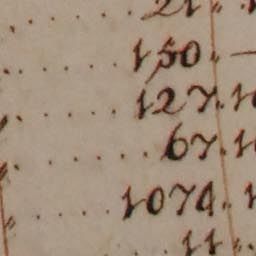 21
150. —
127. 1
67. 1
1074. 1
11